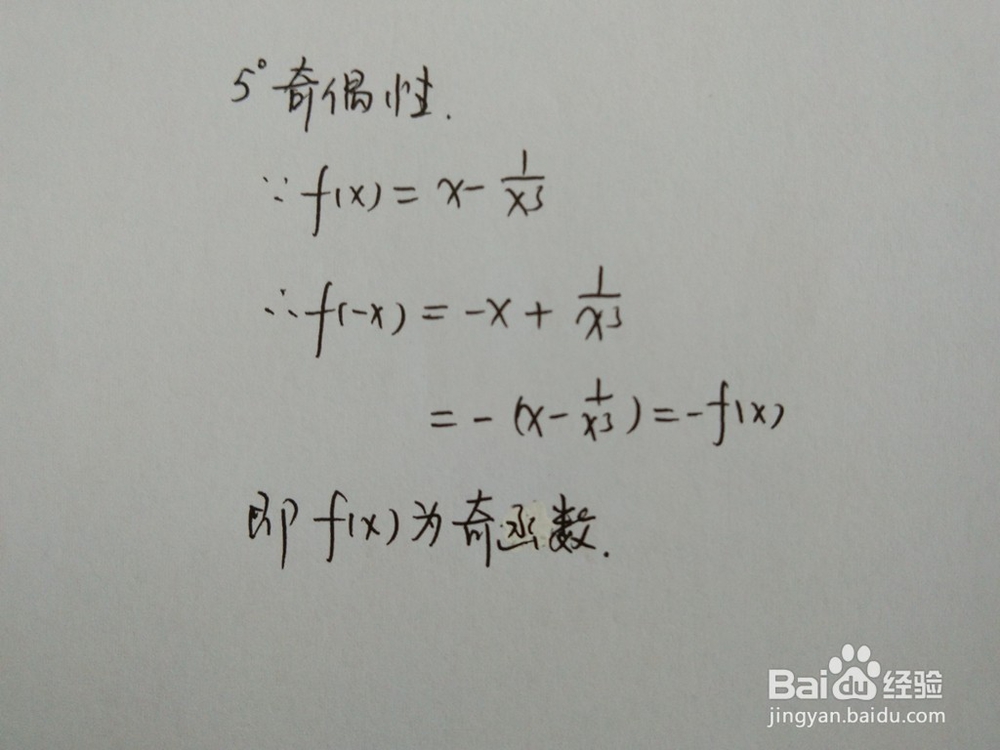 5° 奇偶性.
∵ f(x) = x - 1/x³
∴ f(-x) = -x + 1/x³
= - (x - 1/x³) = -f(x)
即 f(x) 为奇函数.
Baidu 经验
jingyan.baidu.com